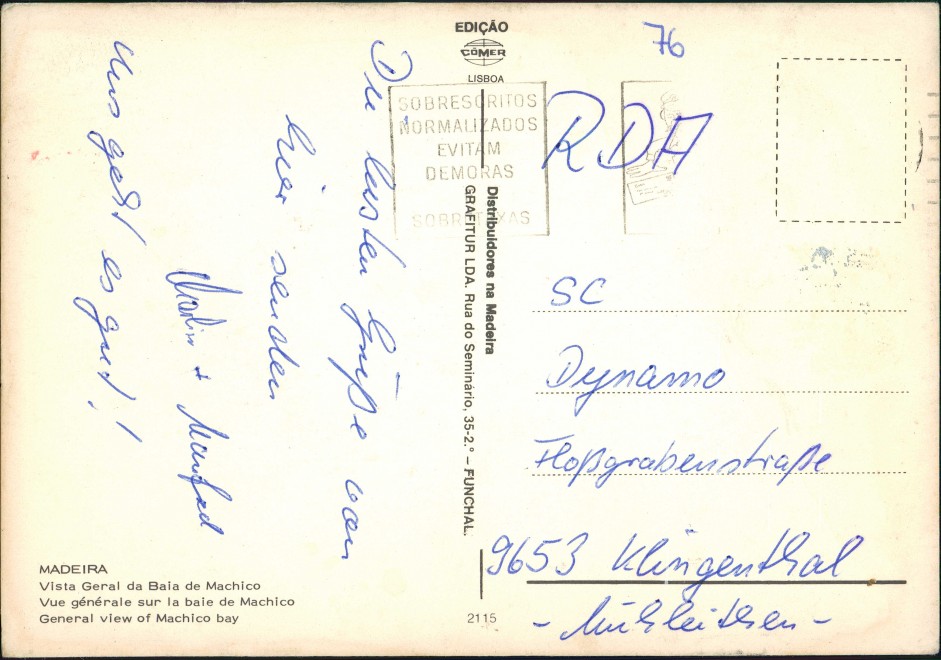 EDIÇÃO
COMER
LISBOA
76
SOBRESCRITOS
NORMALIZADOS
EVITAM
DEMORAS
SOBRETAXAS
RDA
Die besten Grüße von
hier senden
Martin + Manfred
Uns geht es gut!
Distribuidores na Madeira
GRAFITUR LDA. Rua do Seminário, 35-2.º – FUNCHAL.
SC
Dynamo
Floßgrabenstraße
9653 Klingenthal
- Mühlleithen -
MADEIRA
Vista Geral da Baia de Machico
Vue générale sur la baie de Machico
General view of Machico bay
2115